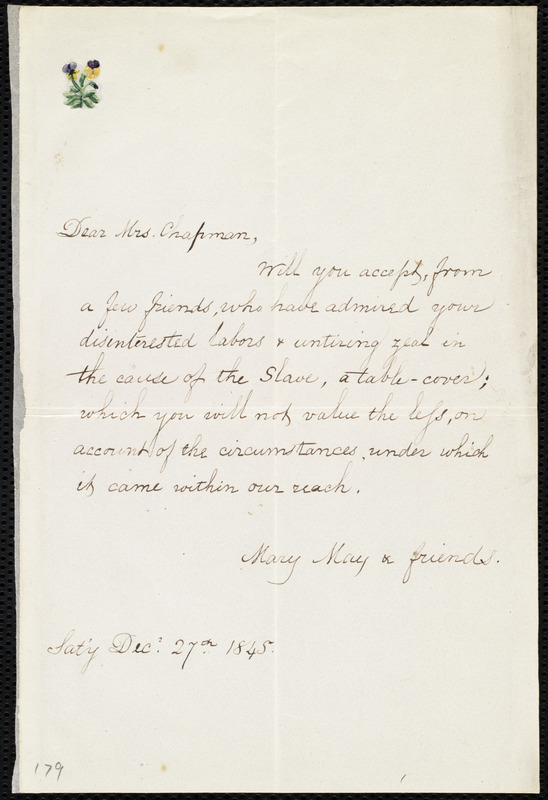 Dear Mrs. Chapman,
Will you accept, from
a few friends, who have admired your
disinterested labors & untiring zeal in
the cause of the Slave, a table-cover;
which you will not value the leſs, on
account of the circumstances, under which
it came within our reach.
Mary May & friends.
Sat'y Dec. 27th 1845.
179